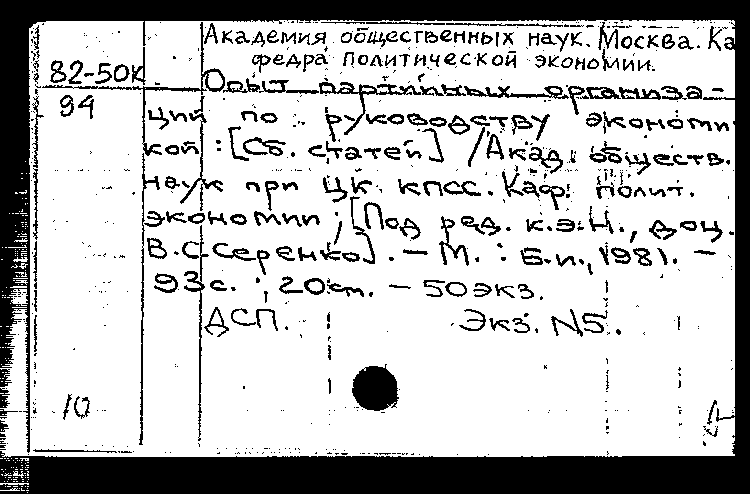 Академия общественных наук. Москва. Ка
федра политической экономии.
82-50к
Опыт партийных организа-
94
ций по руководству экономи
кой : [Сб. статей] / Акад. обществ.
наук при ЦК КПСС. Каф. полит.
экономии ; [Под ред. к.э.н., доц.
В.С.Серенко]. – М. : Б.и., 1981. –
93с. ; 20см. – 50экз.
ДСП. Экз. N5.
10